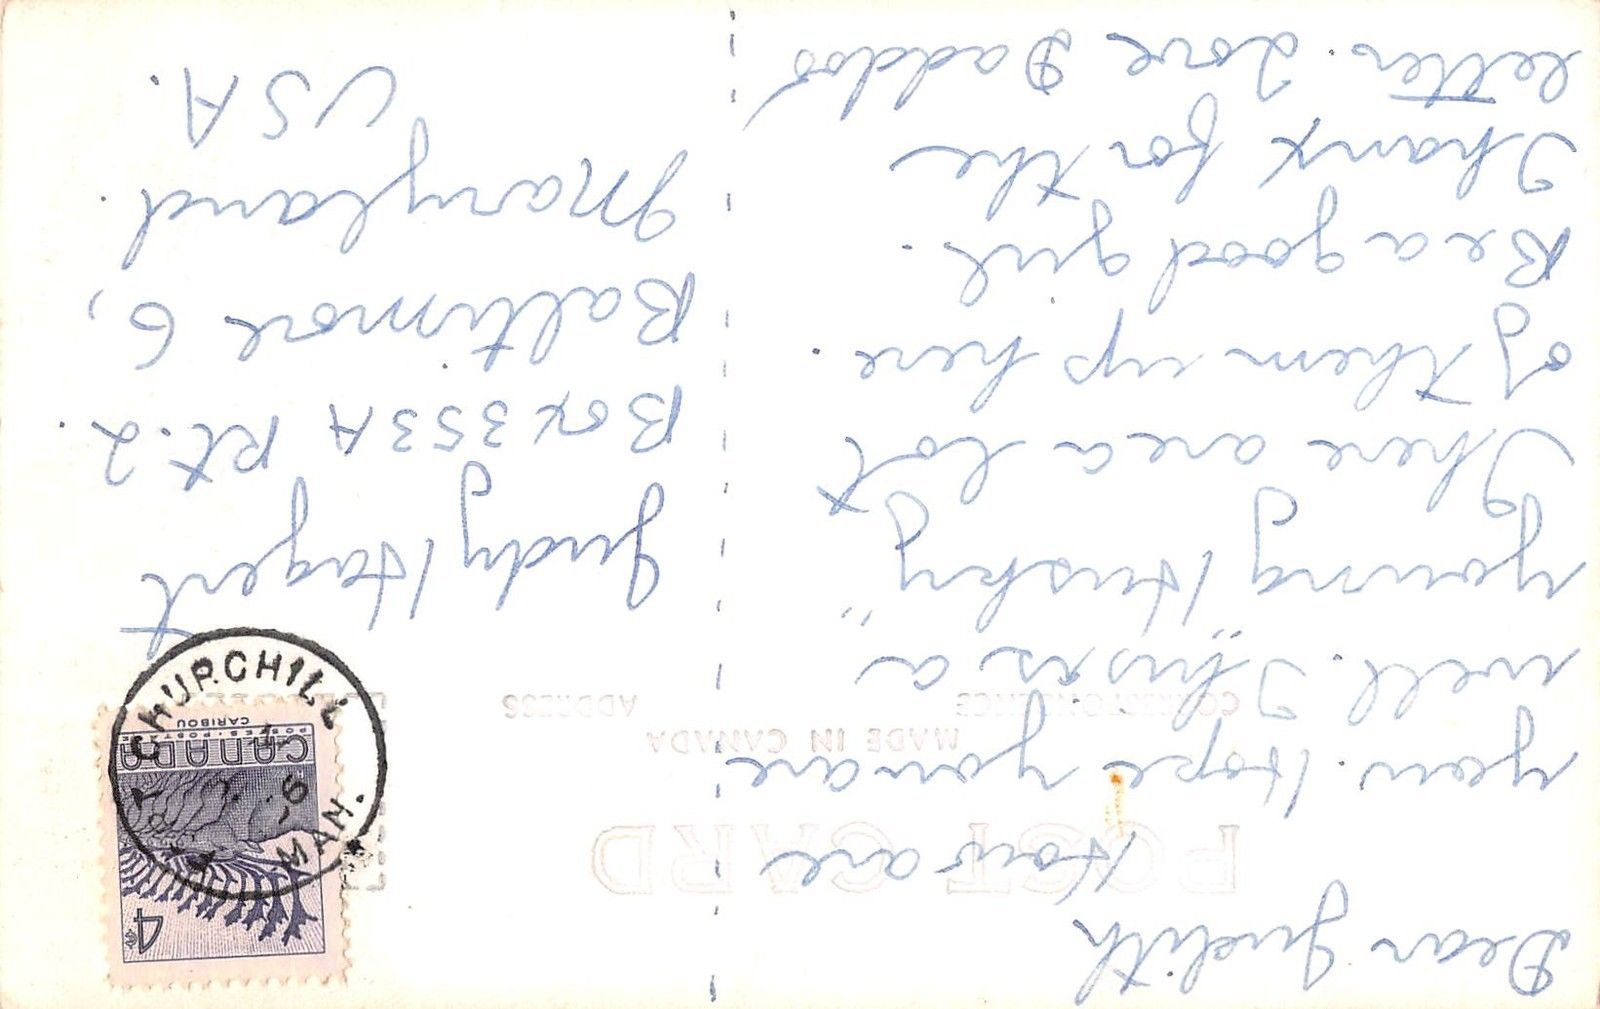 Dear Judith
How are
you. Hope you are
well. This is a
young "Husky"
There are a lot
of them up here.
Be a good girl.
Thanx for the
letter. Love Daddos
POST CARD
MADE IN CANADA
CORRESPONDENCE
ADDRESS
4¢
CANADA
POSTES-POSTAGE
CARIBOU
CHURCHILL
MAN.
Judy Hagert
Box 353A Rt. 2.
Baltimore 6,
Maryland.
USA.